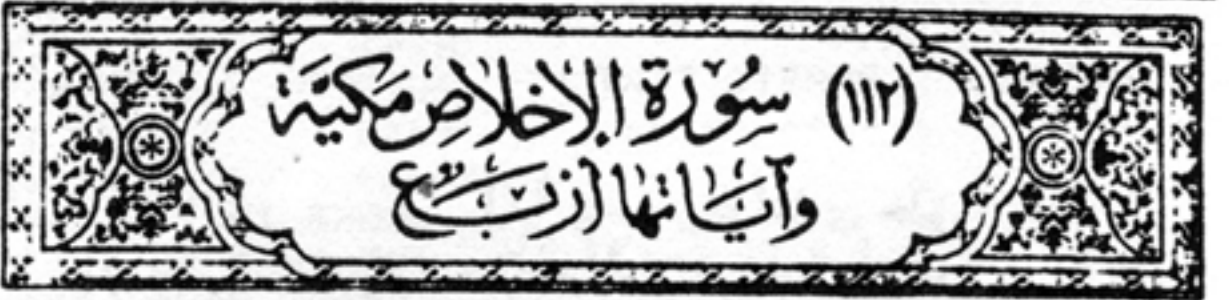 (١١٢) سُورَة الإخلاصِ مَكيَّة
وآيَاتها أرْبَع